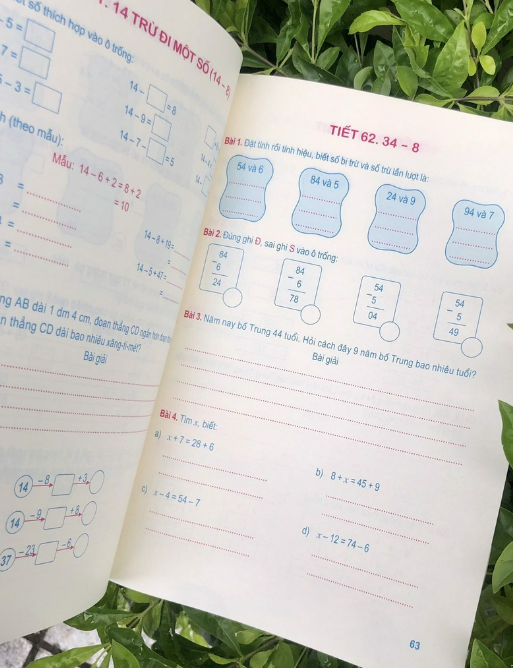 . 14 TRỪ ĐI MỘT SỐ (14 - 8
số thích hợp vào ô trống:
- 5 =
7 =
- 3 =
14 - = 8
14 - 9 =
14 - 7 - = 5
h (theo mẫu):
Mẫu: 14 - 6 + 2 = 8 + 2
= 10
=
=
=
=
14 - 8 + 19 =
=
14 - 5 + 47 =
=
ng AB dài 1 dm 4 cm, đoạn thẳng CD ngắn hơn đoạn
n thẳng CD dài bao nhiêu xăng-ti-mét?
Bài giải
14 - 8 + 3
14 - 9 + 8
37 - 23 - 6
TIẾT 62. 34 - 8
Bài 1. Đặt tính rồi tính hiệu, biết số bị trừ và số trừ lần lượt là:
54 và 6 84 và 5 24 và 9 94 và 7
Bài 2. Đúng ghi Đ, sai ghi S vào ô trống:
84 84 54 54
- 6 - 6 - 5 - 5
24 78 04 49
Bài 3. Năm nay bố Trung 44 tuổi. Hỏi cách đây 9 năm bố Trung bao nhiêu tuổi?
Bài giải
Bài 4. Tìm x, biết:
a) x + 7 = 28 + 6
b) 8 + x = 45 + 9
c) x - 4 = 54 - 7
d) x - 12 = 74 - 6
63